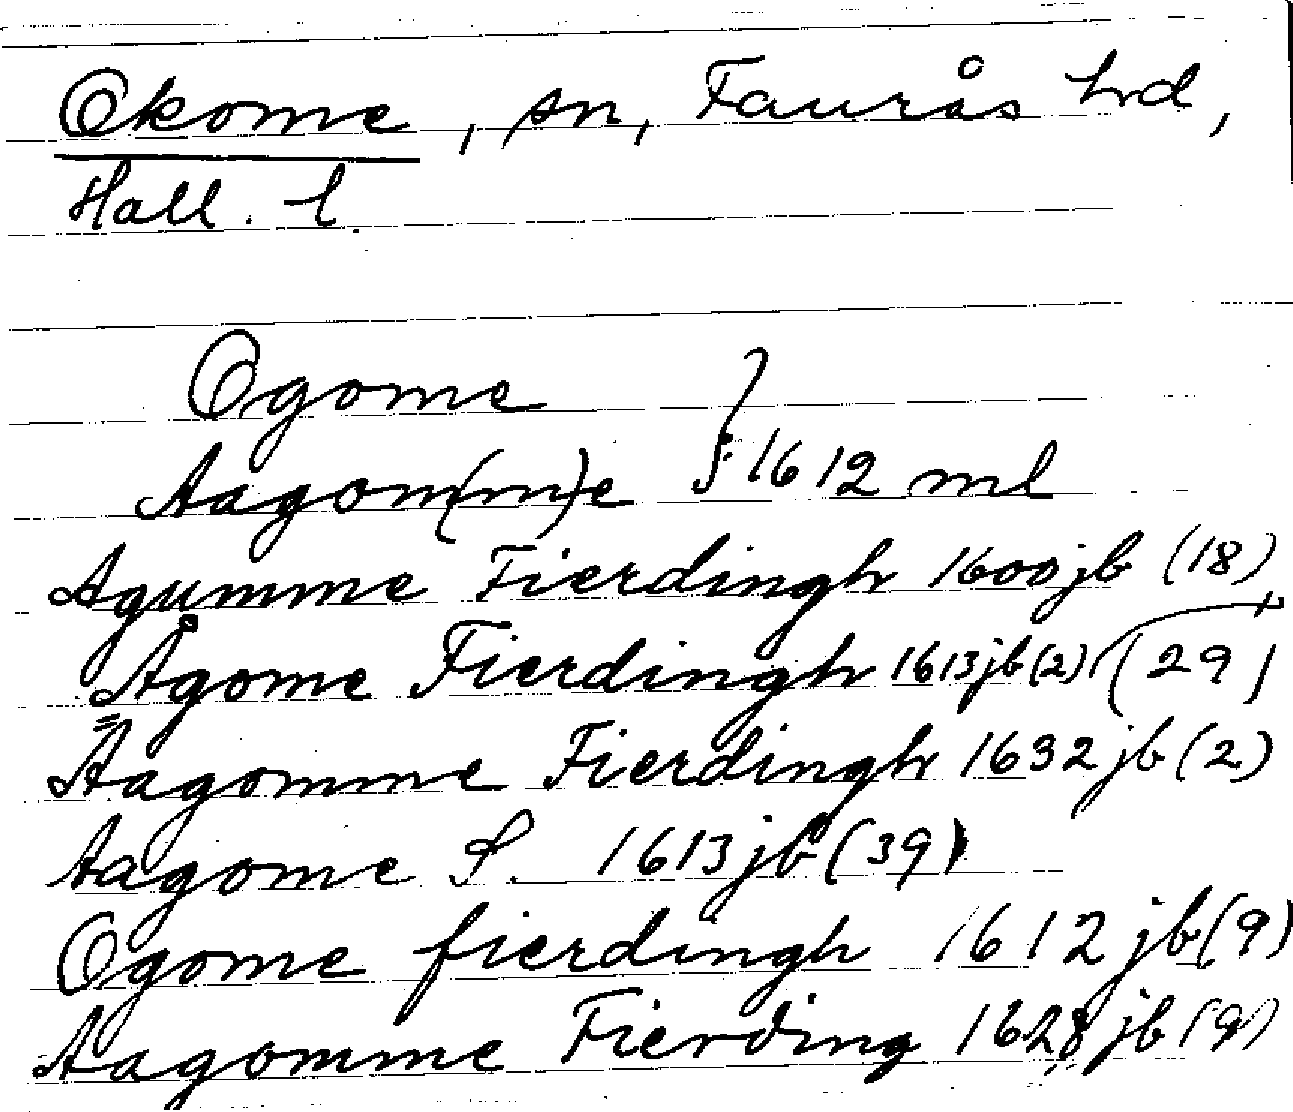 Okome, sn, Faurås hd,
Hall. l.
Ogome
Aagom(m)e } : 1612 ml
Agumme Fierdingh 1600 jb (18)
Ågome Fierdingh 1613 jb (2) (29)
Aagomme Fierdingh 1632 jb (2)
Aagome S. 1613 jb (39)
Ogome fierdingh 1612 jb (9)
Aagomme Fierding 1628 jb (9)